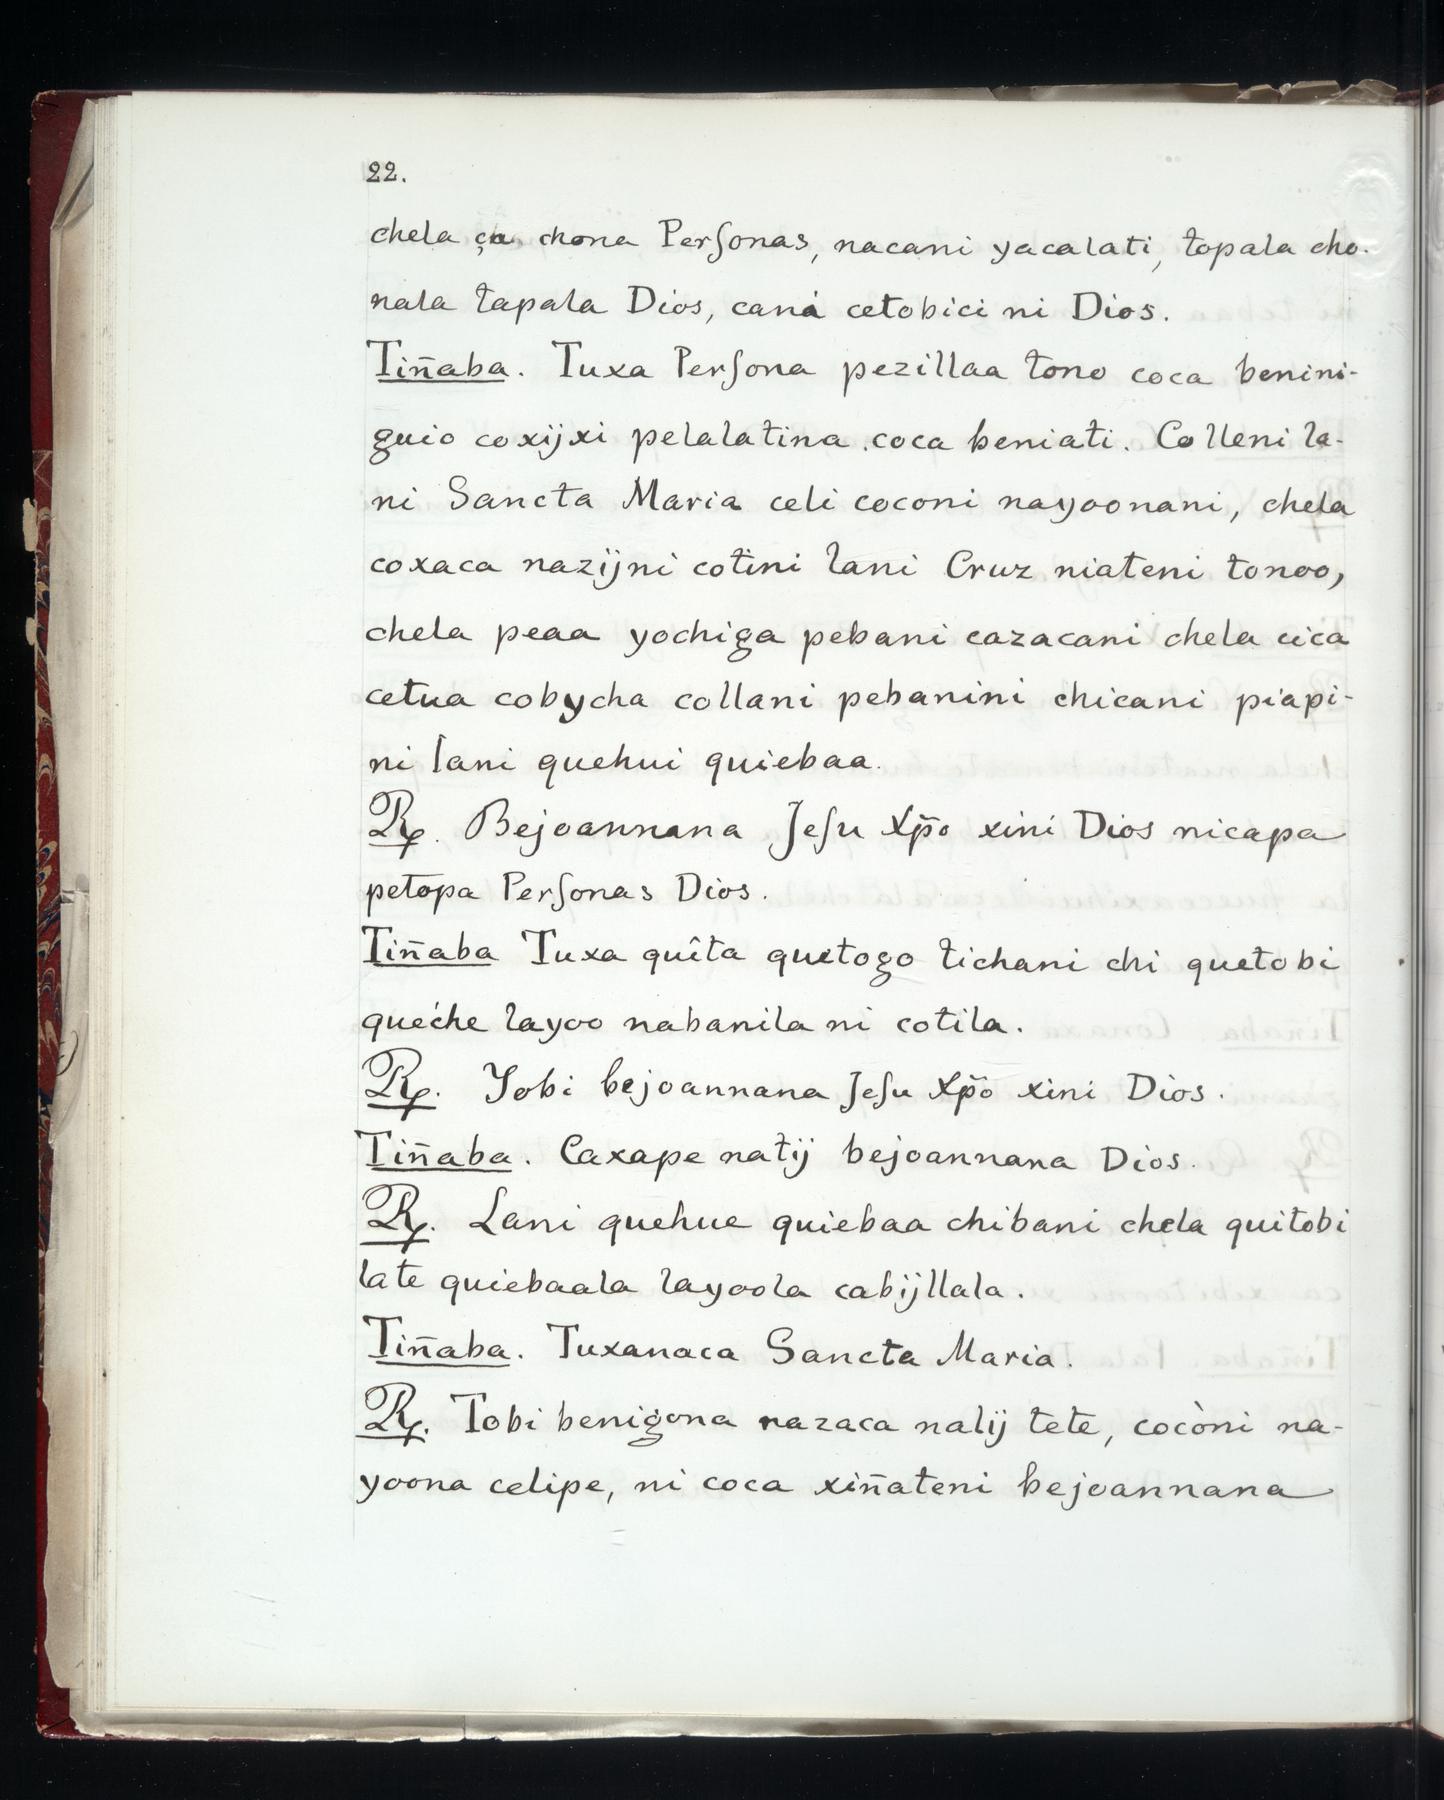 22.
chela ça chona Perſonas, nacani yacalati, topala cho-
nala tapala Dios, cani cetobici ni Dios.
Tiñaba. Tuxa Perſona pezillaa tono coca benini-
guio coxijxi pelalatina coca beniati. Colleni la-
ni Sancta Maria celi coconi nayoonani, chela
coxaca nazijni cotini lani Cruz niateni tonoo,
chela peaa yochiga pebani cazacani chela cica
cetua cobycha collani pebanini chicani piapi-
ni lani quehui quiebaa.
℞. Bejoannana Jeſu Xp̃o xini Dios nicapa
petopa Perſonas Dios.
Tiñaba Tuxa quîta quetogo tichani chi quetobi
quéche layoo nabanila ni cotila.
℞. Yobi bejoannana Jeſu Xp̃o xini Dios.
Tiñaba. Caxape natij bejoannana Dios.
℞. Lani quehue quiebaa chibani chela quitobi
late quiebaala layoola cabijllala.
Tiñaba. Tuxanaca Sancta Maria.
℞. Tobi benigona nazaca nalij tete, cocòni na-
yoona celipe, ni coca xiñateni bejoannana